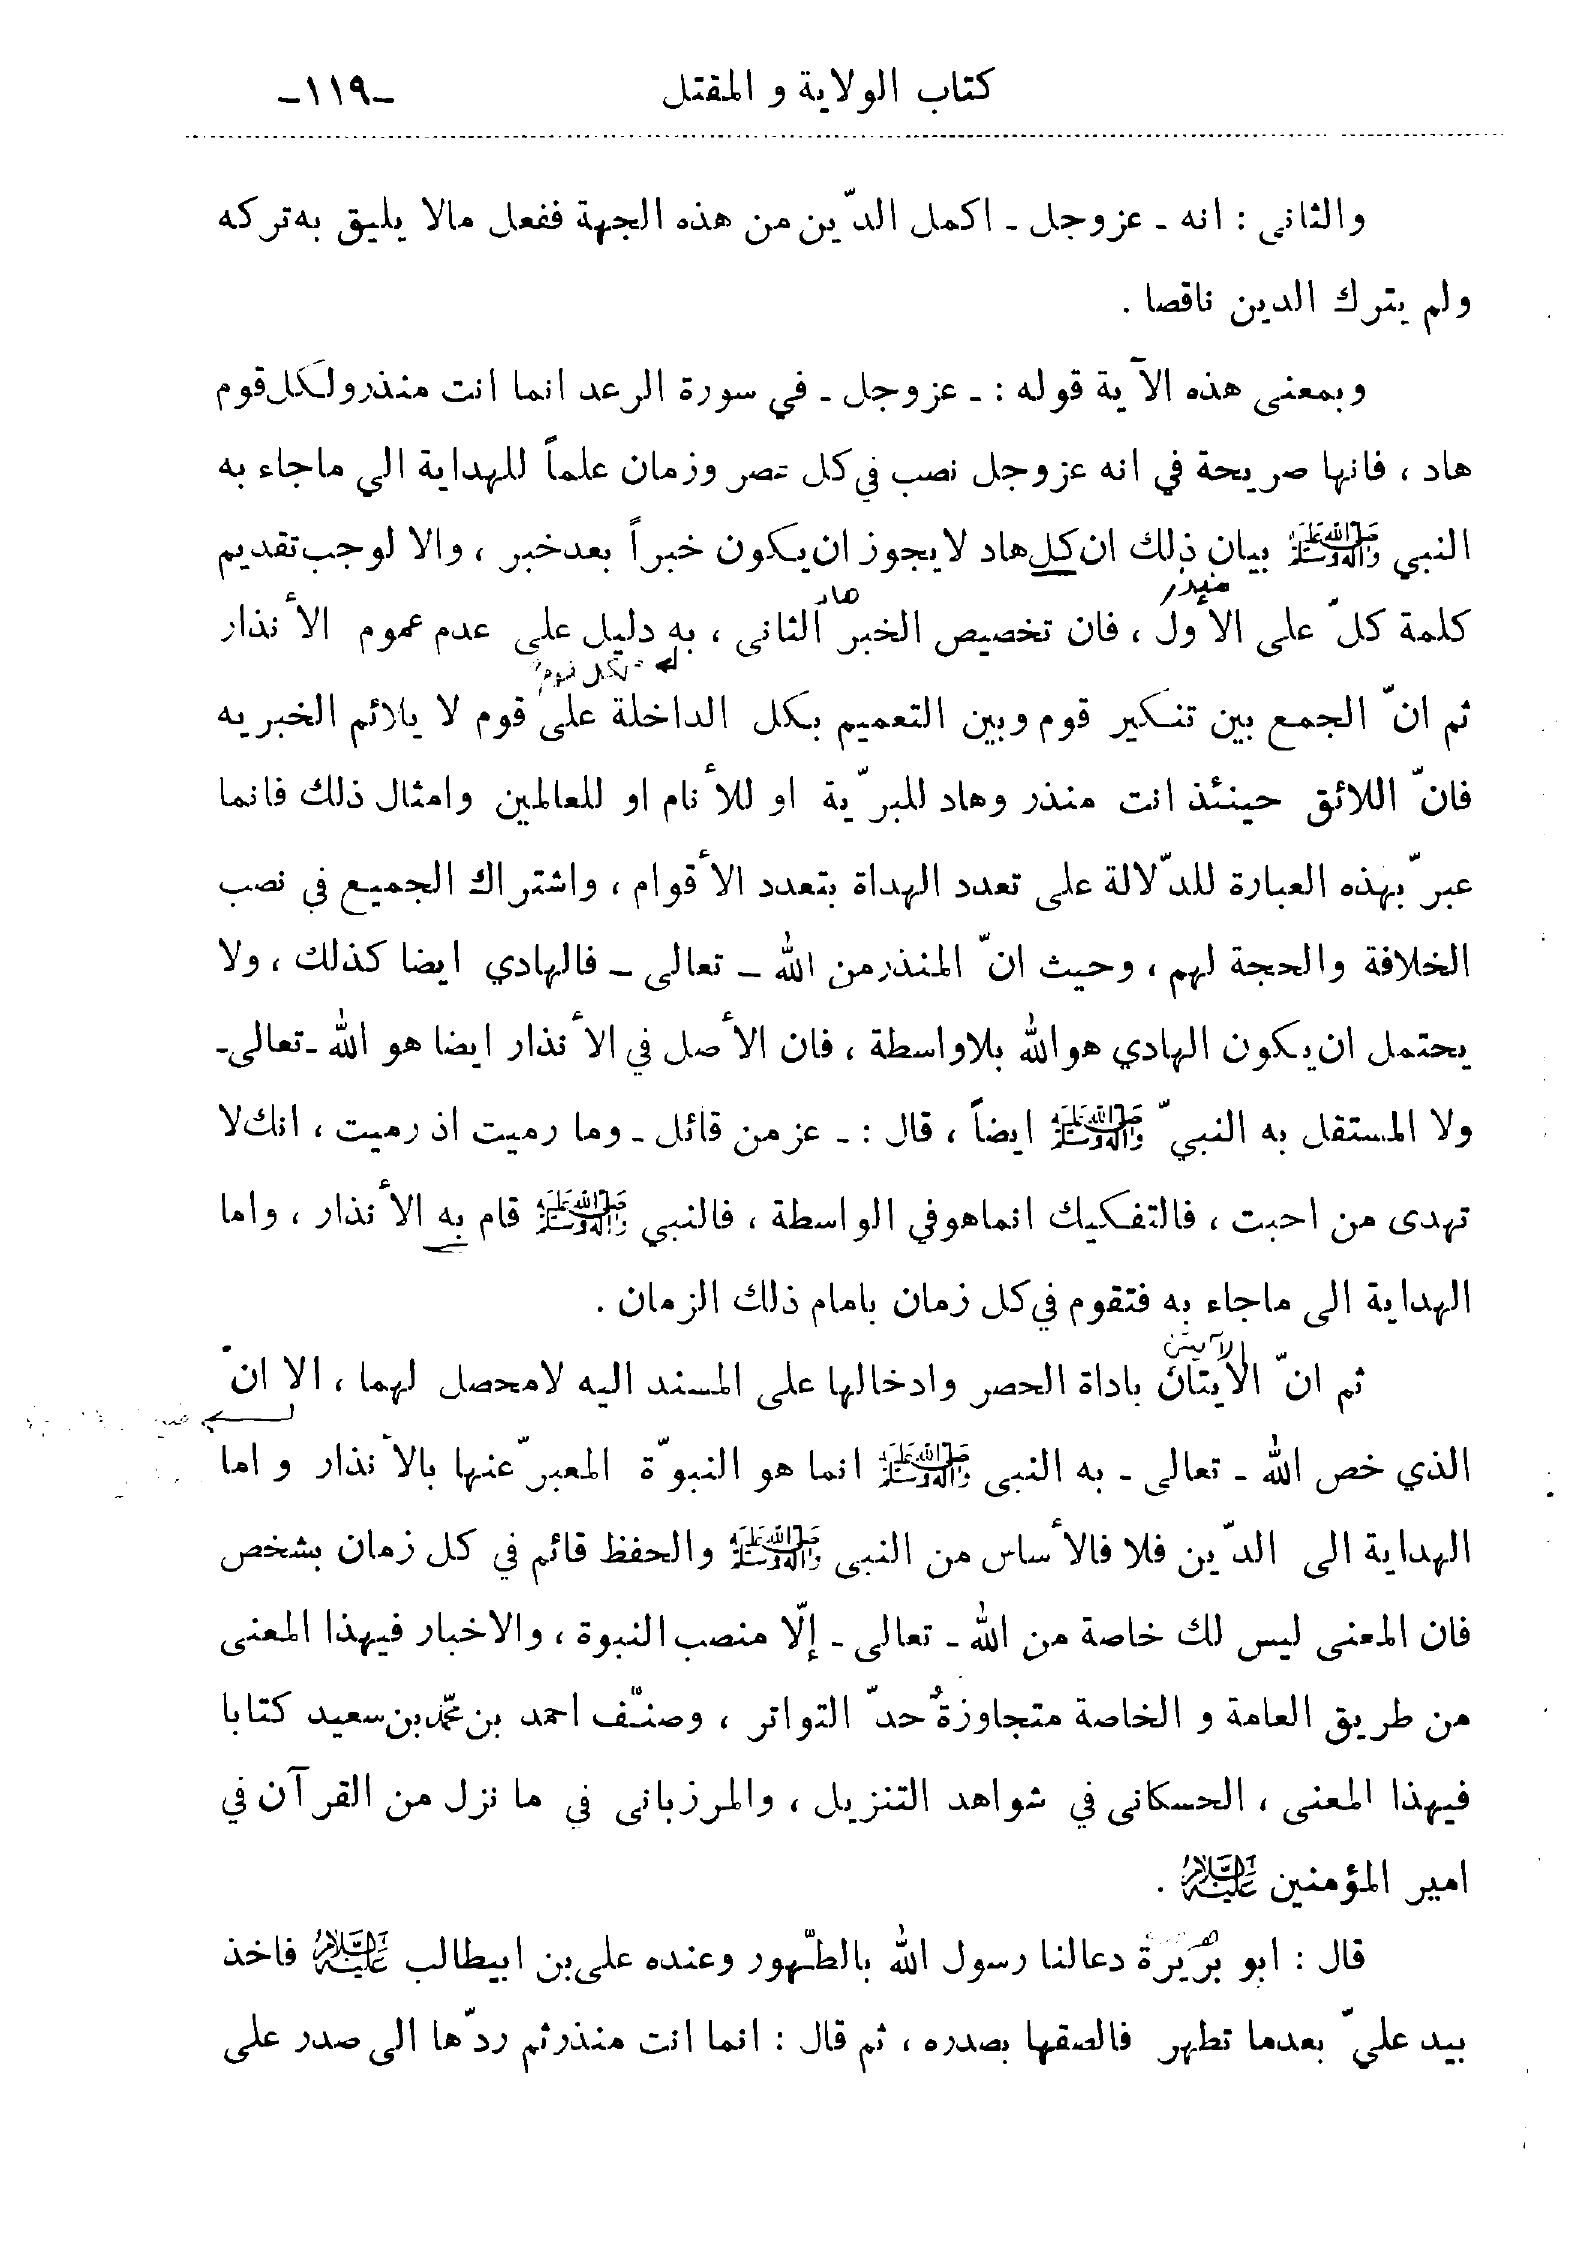 كتاب الولاية و المقتل -١١٩-
والثانى : انه ـ عزوجل ـ اكمل الدّين من هذه الجهة ففعل مالا يليق به تركه
ولم يترك الدين ناقصا .
وبمعنى هذه الآية قوله : ـ عزوجل ـ في سورة الرعد انما انت منذر ولكل قوم
هاد ، فانها صريحة في انه عزوجل نصب في كل عصر وزمان علماً للهداية الي ماجاء به
النبي ﷺ بيان ذلك ان كل هاد لايجوز ان يكون خبراً بعد خبر ، والا لوجب تقديم
منذر هاد
كلمة كلّ على الاول ، فان تخصيص الخبر الثانى ، به دليل على عدم عموم الأنذار
لكل قوم
ثم انّ الجمع بين تنكير قوم وبين التعميم بكل الداخلة على قوم لا يلائم الخبريه
فانّ اللائق حينئذ انت منذر وهاد للبرّية او للأنام او للعالمين وامثال ذلك فانما
عبرّ بهذه العبارة للدّلالة على تعدد الهداة بتعدد الأقوام ، واشتراك الجميع في نصب
الخلافة والحجة لهم ، وحيث انّ المنذر من الله ـ تعالى ـ فالهادي ايضا كذلك ، ولا
يحتمل ان يكون الهادي هوالله بلاواسطة ، فان الأصل في الأنذار ايضا هو الله ـ تعالى ـ
ولا المستقل به النبيّ ﷺ ايضاً ، قال : ـ عز من قائل ـ وما رميت اذ رميت ، انك لا
تهدى من احببت ، فالتفكيك انماهوفي الواسطة ، فالنبي ﷺ قام به الأنذار ، واما
الهداية الى ماجاء به فتقوم في كل زمان بامام ذلك الزمان .
الآيتين
ثم انّ الايتان باداة الحصر وادخالها على المسند اليه لامحصل لهما ، الا انّ
الذي خص الله ـ تعالى ـ به النبى ﷺ انما هو النبوّة المعبرّ عنها بالأنذار و اما
الهداية الى الدّين فلا فالأساس من النبى ﷺ والحفظ قائم في كل زمان بشخص
فان المعنى ليس لك خاصة من الله ـ تعالى ـ إلّا منصب النبوة ، والاخبار فيهذا المعنى
من طريق العامة و الخاصة متجاوزة حدّ التواتر ، وصنّف احمد بن محمّد بن سعيد كتابا
فيهذا المعنى ، الحسكانى في شواهد التنزيل ، والمرزبانى في ما نزل من القرآن في
امير المؤمنين عليه السلام .
قال : ابو بريرة دعالنا رسول الله بالطّهور وعنده على بن ابيطالب عليه السلام فاخذ
بيد عليّ بعدما تطهر فالصقها بصدره ، ثم قال : انما انت منذر ثم ردّها الى صدر على